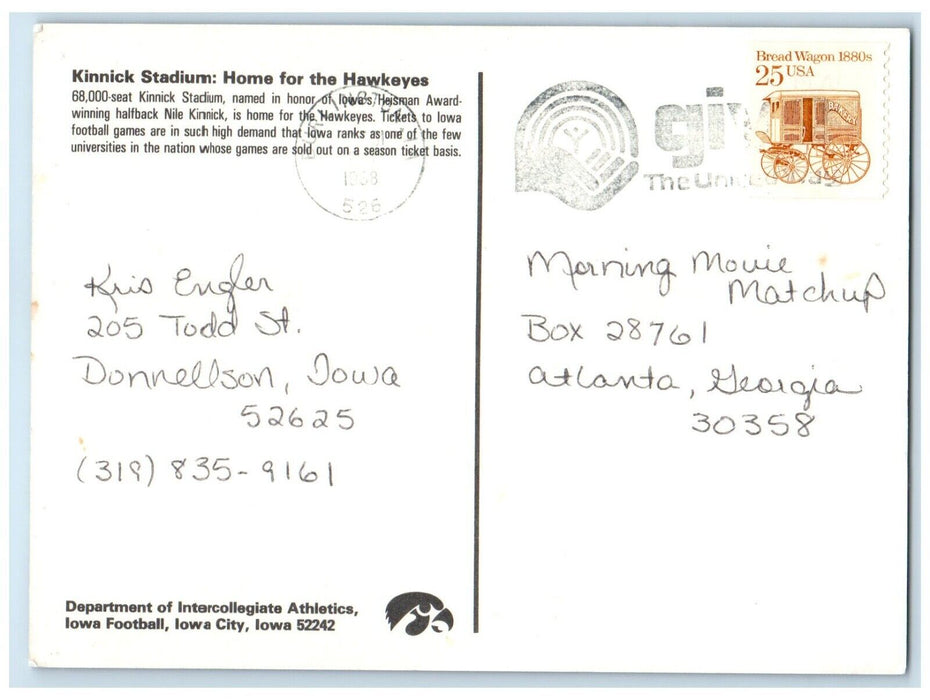 Kinnick Stadium: Home for the Hawkeyes
68,000-seat Kinnick Stadium, named in honor of Iowa's Heisman Award-
winning halfback Nile Kinnick, is home for the Hawkeyes. Tickets to Iowa
football games are in such high demand that Iowa ranks as one of the few
universities in the nation whose games are sold out on a season ticket basis.
1988
526
Kris Engler
205 Todd St.
Donnellson, Iowa
52625
(319) 835-9161
Department of Intercollegiate Athletics,
Iowa Football, Iowa City, Iowa 52242
Bread Wagon 1880s
25 USA
BAKERY
give
The United Way
Morning Movie
Matchup
Box 28761
Atlanta, Georgia
30358